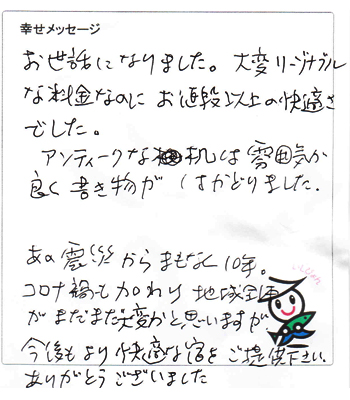 幸せメッセージ
お世話になりました。大変リーゾナブル
な料金なのにお値段以上の快適さ
でした。
アンティークな机は雰囲気が
良く書き物がはかどりました。
あの震災からまもなく10年。
コロナ禍も加わり地域全体
がまだまだ大変かと思いますが、
今後もより快適な宿をご提供下さい。
ありがとうございました